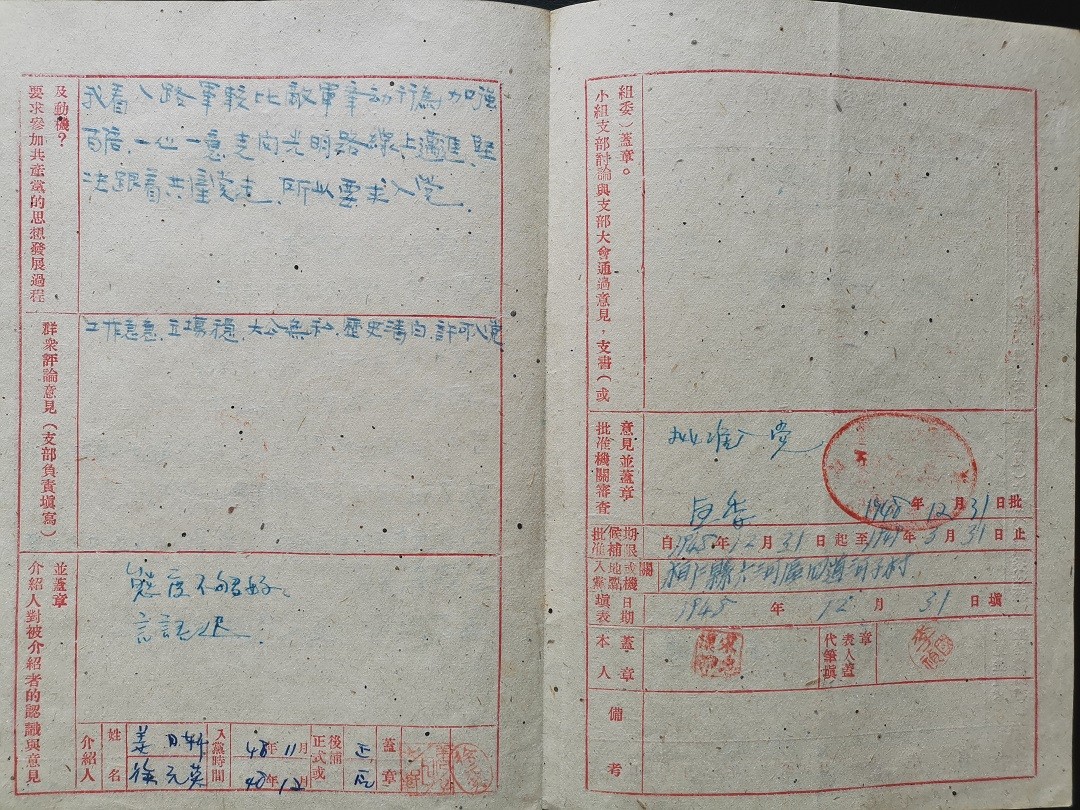 要求參加共產黨的思想發展過程
及動機？
我看八路軍較比敵軍幸动行為加強
百倍．一心一意走向光明路線上邁進．堅
法跟着共產党走．所以要求入党．
群衆評論意見（支部負責塡寫）
立場穩．大公無私．歷史清白．許可入党
介紹人對被介紹者的認識與意見
並蓋章
態度不够好。
言語
介紹人
姓名
姜
徐元英
入黨時間
48年11月
48年12月
正式或
後補
正
蓋章
小組支部討論與支部大會通過意見，支書（或
組委）蓋章。
批准機關審查
意見並蓋章
批准入党
区委
1948年12月31日批
批准候補期限
自1948年12月31日起至1949年3月31日止
入黨地點或機關
桓仁縣六河區四道河子村
填表日期
1948年12月31日塡
本人蓋章
代筆塡表人蓋章
備考